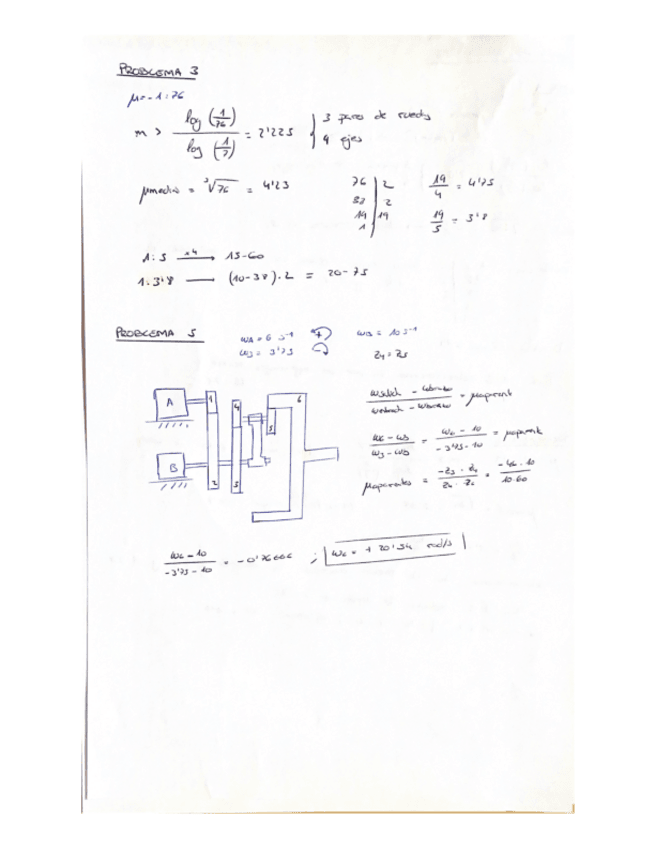 PROBLEMA 3
μ = -1:76
m > log (1/76) / log (1/7) = 2'225 { 3 pares de ruedas
4 ejes
μmedia = ³√76 = 4'23
76 | 2
38 | 2
19 | 19
1
19/4 = 4'75
19/5 = 3'8
1:5 —x4→ 15-60
1:3'8 — (10-38)·2 = 20-75
PROBLEMA 5
ωA = 6 s⁻¹
ω3 = 3'75
ωB = 10 s⁻¹
Z4 = Z5
A
B
1
2
3
4
5
6
ωsalida - ωbrazo / ωentrada - ωbrazo = μaparente
ω6 - ωB / ω3 - ωB = ω6 - 10 / -3'75 - 10 = μaparente
μaparente = -Z3 · Z5 / Z4 · Z6 = -46 · 10 / 10 · 60
ω6 - 10 / -3'75 - 10 = -0'76666 ; ω6 = + 20'54 rad/s